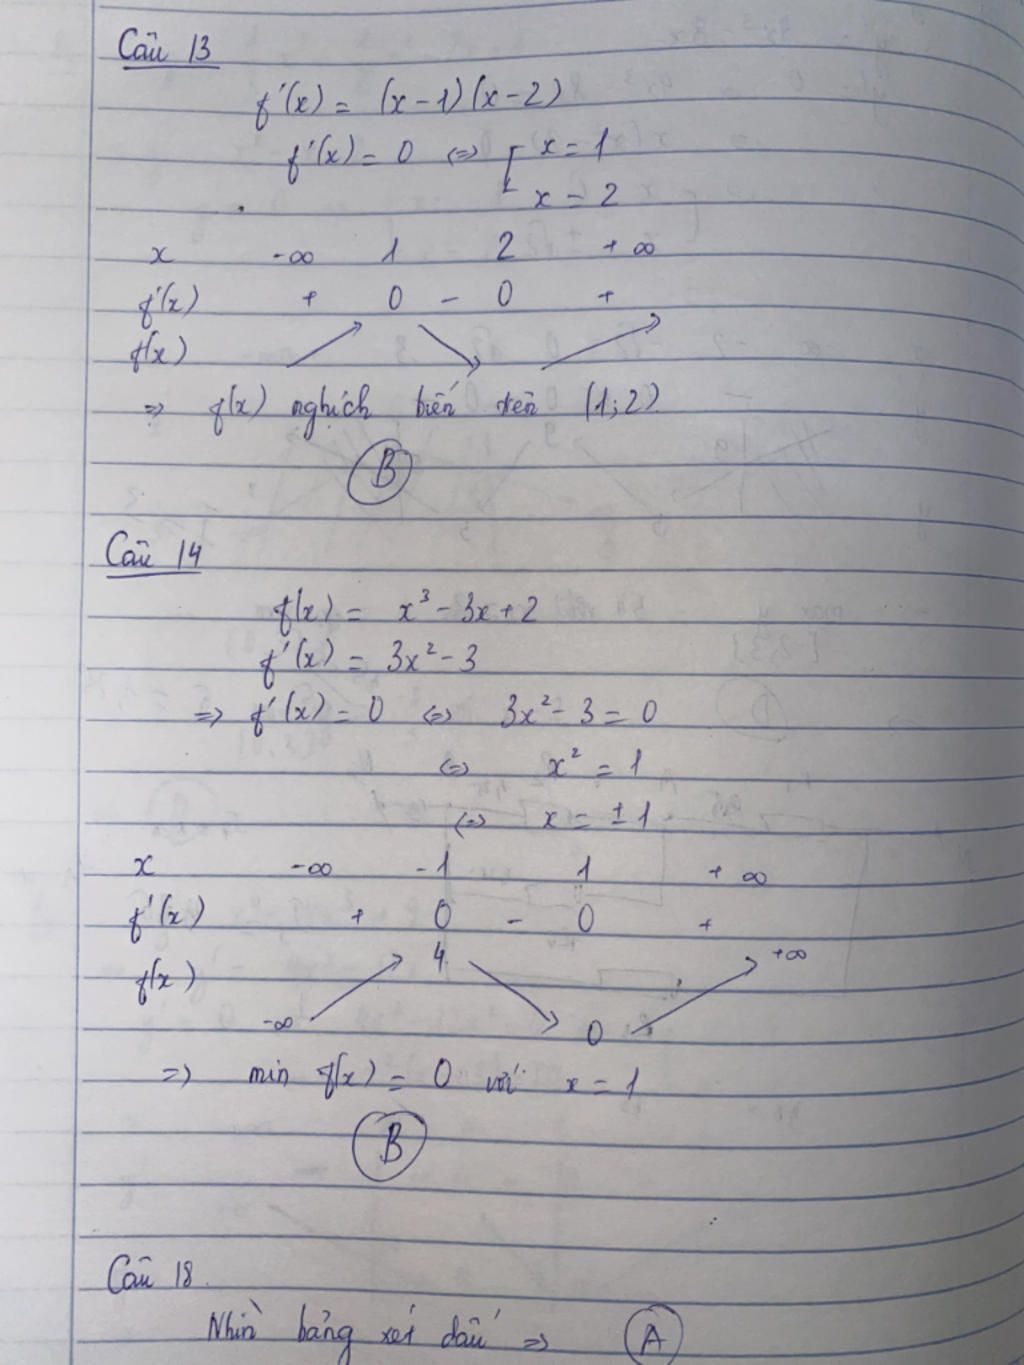 Câu 13
f'(x) = (x-1)(x-2)
f'(x) = 0 <=> [ x = 1
x = 2
x -∞ 1 2 +∞
f'(x) + 0 - 0 +
f(x)
=> f(x) nghịch biến trên (1;2)
B
Câu 14
f(x) = x³ - 3x + 2
f'(x) = 3x² - 3
=> f'(x) = 0 <=> 3x² - 3 = 0
<=> x² = 1
<=> x = ±1
x -∞ -1 1 +∞
f'(x) + 0 - 0 +
4 +∞
f(x)
-∞ 0
=> min f(x) = 0 với x = 1
B
Câu 18
Nhìn bảng xét dấu => A